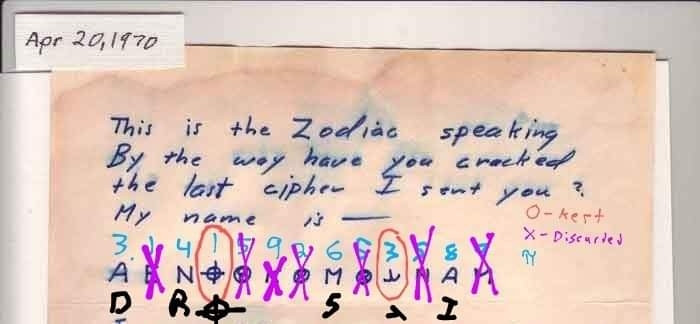 Apr 20, 1970
This is the Zodiac speaking
By the way have you cracked
the last cipher I sent you ?
My name is —
O - kept
X - Discarded
3 4 1 9 6 3 8
A E N ⌖ M N A M
D R ⌖ S λ I